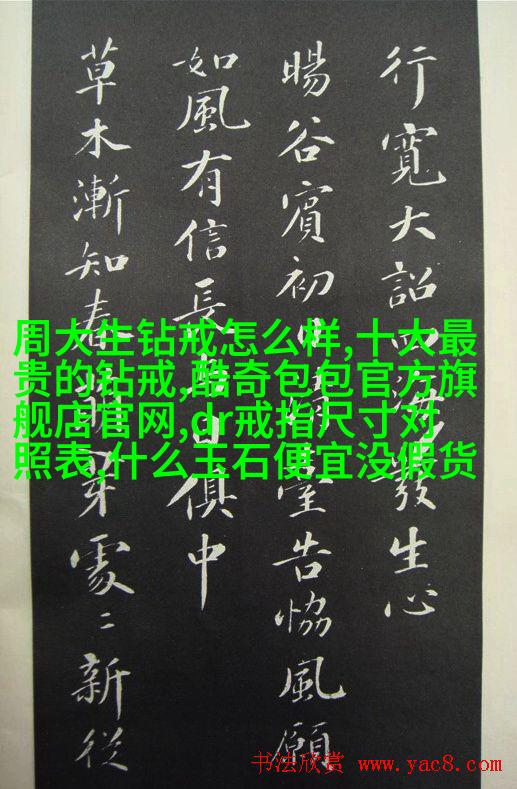 行寬大詔四海發生心
暘谷賓初日清臺告協風願
如風有信長與日俱中
草木漸知春萌芽處〻新從
周大生钻戒怎么样,十大最
贵的钻戒,酷奇包包官方旗
舰店官网,dr戒指尺寸对
照表,什么玉石便宜没假货
书法欣赏 www.yac8.com